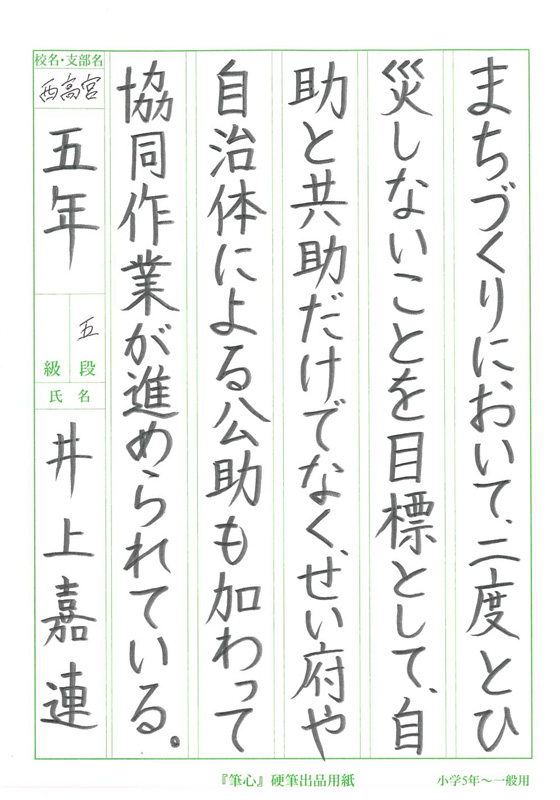 まちづくりにおいて、二度とひ
災しないことを目標として、自
助と共助だけでなく、せい府や
自治体による公助も加わって
協同作業が進められている。
校名・支部名
西高宮
五年
五
級 段
氏名
井上嘉連
『筆心』硬筆出品用紙
小学5年～一般用